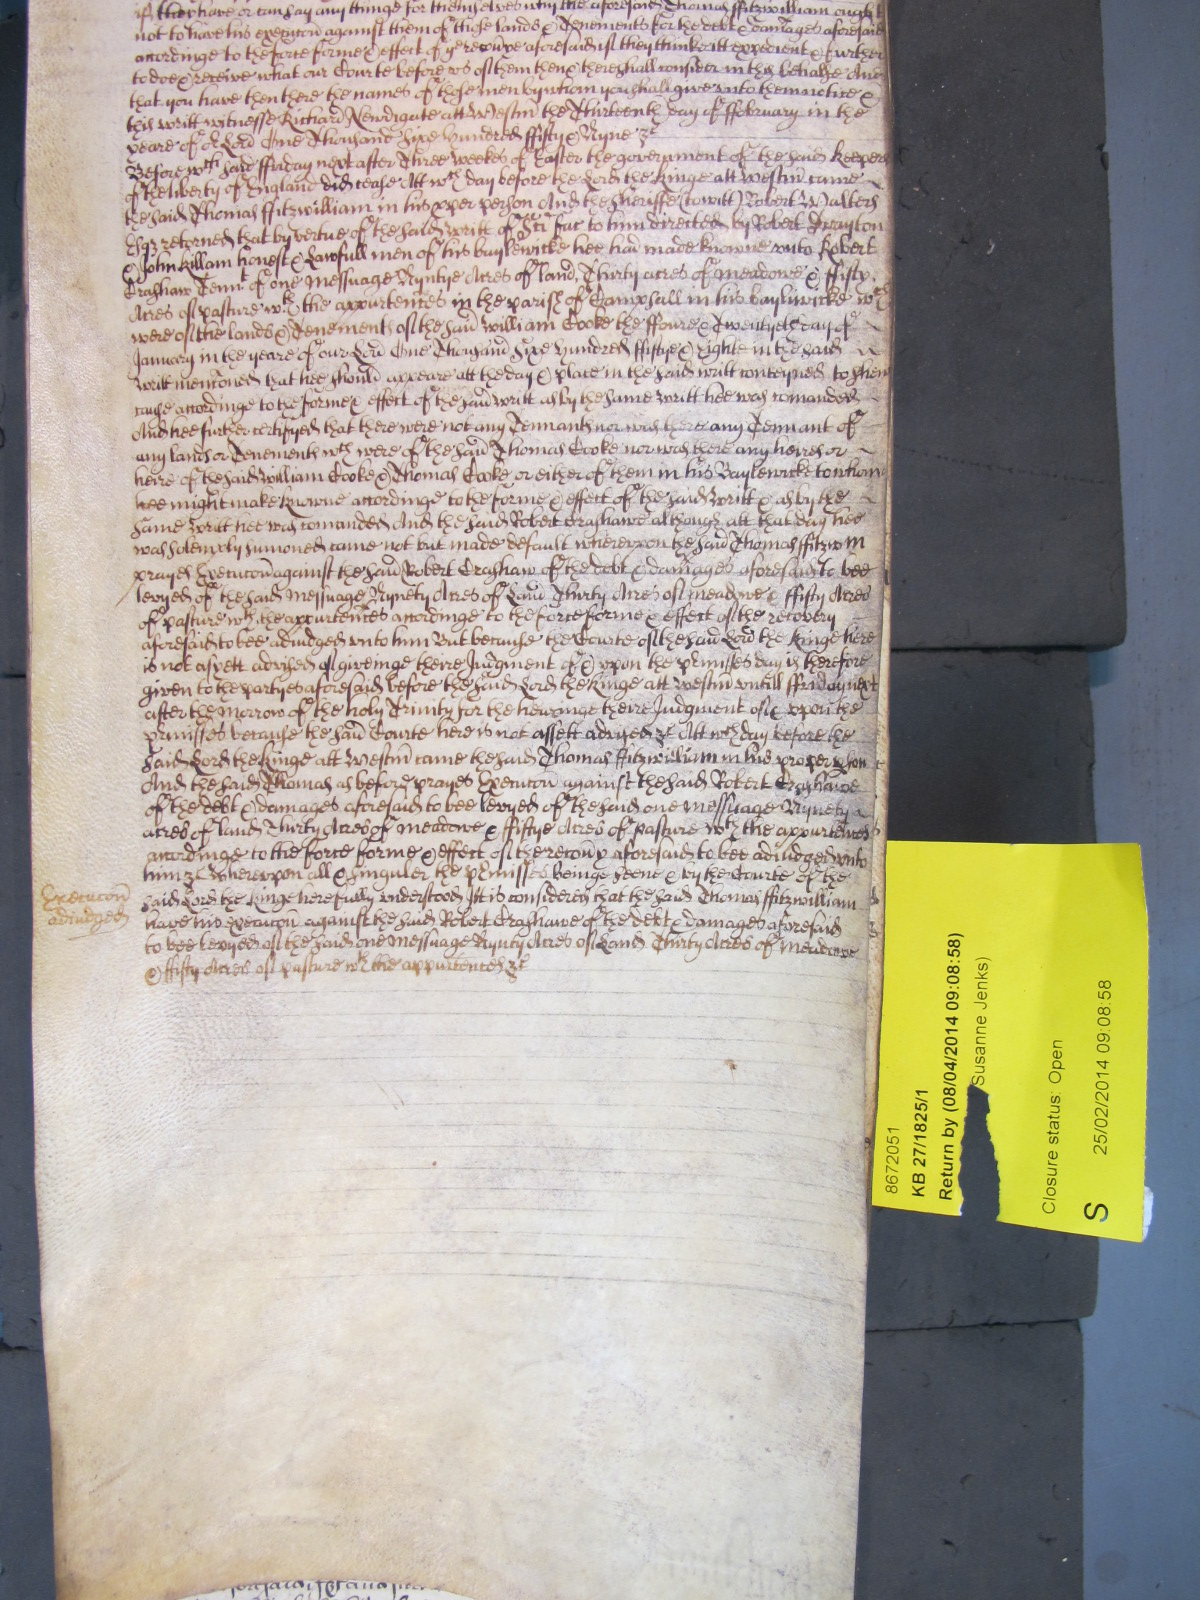 if they have or can say any thinge for themselves why the aforesaid Thomas ffitzwilliam ought
not to have his execucon against them of those lands & Tenements for the debt & damages aforesaid
accordinge to the force forme & effect of ye recovre aforesaid if they thinke itt expedient & further
to doe & receive what our Courte before us of them then & there shall consider in this behalfe And
that you have then there the names of those men by whom you shall give unto them notice &
this writt witnesse Richard Newdigate att Westm the Thirteenth day of ffebruary in the
yeare of or Lord One Thousand Sixe hundred ffifty & Nyne &c
Before wch said ffriday next after Three weekes of Easter the government of the said Keepers
of the liberty of England did cease Att wch day before the Lord the Kinge att Westm came
the said Thomas ffitzwilliam in his pper person And the Sheriffe (to witt) Robert Walters
Esqr retorned that by vertue of the said writt of Sci fac to him directed by Robert Drayton
& John Killam honest & Lawfull men of his baylewicke hee had made knowne unto Robert
Crashaw Tennt of one messuage Nyntye Acres of land Thirty acres of meadowe & ffifty
Acres of pasture wth the appurtences in the parish of Campsall in his bayliwicke wch
were of the lands & Tenements of the said William Cooke the ffoure & Twentyeth day of
January in the yeare of our Lord One Thousand Sixe hundred ffiftye & eighte in the said
writt mencioned that hee should appeare att the day & place in the said writt conteyned to shew
cause accordinge to the forme & effect of the said writt as by the same writt hee was comanded
And hee further certifyed that there were not any Tennants nor was there any Tennant of
any lands or Tenements wch were of the said Thomas Cooke nor was there any heires or
heire of the said William Cooke & Thomas Cooke or either of them in his Baylewicke to whom
hee might make knowne accordinge to the forme & effect of the said writt & as by the
same writt hee was comanded And the said Robert Crashawe although att that day hee
was solemply sumoned came not but made default whereupon the said Thomas ffitzwm
prayes Execucon against the said Robert Crashaw of the debt & damages aforesaid to bee
levyed of the said messuage Nynety Acres of Land Thirty Acres of meadowe & ffifty Acres
of pasture wth the appurtences accordinge to the force forme & effect of the recovery
aforesaid to bee adiudged unto him But because the Courte of the said Lord the Kinge here
is not as yett advised of giveinge theire Judgment of & uppon the pmisses day is therefore
given to the partyes aforesaid before the said Lord the Kinge att Westm untill ffriday next
after the Morrow of the holy Trinity for the heareinge theire Judgment of & uppon the
pmisses because the said Courte here is not as yett advised &c Att wch day before the
said Lord the Kinge att Westm came the said Thomas ffitzwilliam in his proper pson
And the said Thomas as before prayes Execucon against the said Robert Crashawe
of the debt & damages aforesaid to bee levyed of the said one messuage Nynety
acres of land Thirty Acres of meadowe & ffiftye Acres of pasture wth the appurtences
accordinge to the force forme & effect of the recovy aforesaid to bee adiudged unto
him &c Whereupon all & singuler the pmisses beinge seene & by the Courte of the
Execucon
adiudged
said Lord the Kinge here fully understood Itt is considered that the said Thomas ffitzwilliam
have his execucon against the said Robert Crashawe of the debt & damages aforesaid
to bee levyed of the said one messuage Nynty Acres of Land Thirty Acres of Meadowe
& ffifty Acres of pasture wth the appurtences &c
8672051
KB 27/1825/1
Return by (08/04/2014 09:08:58)
Susanne Jenks)
Closure status: Open
S
25/02/2014 09:08:58